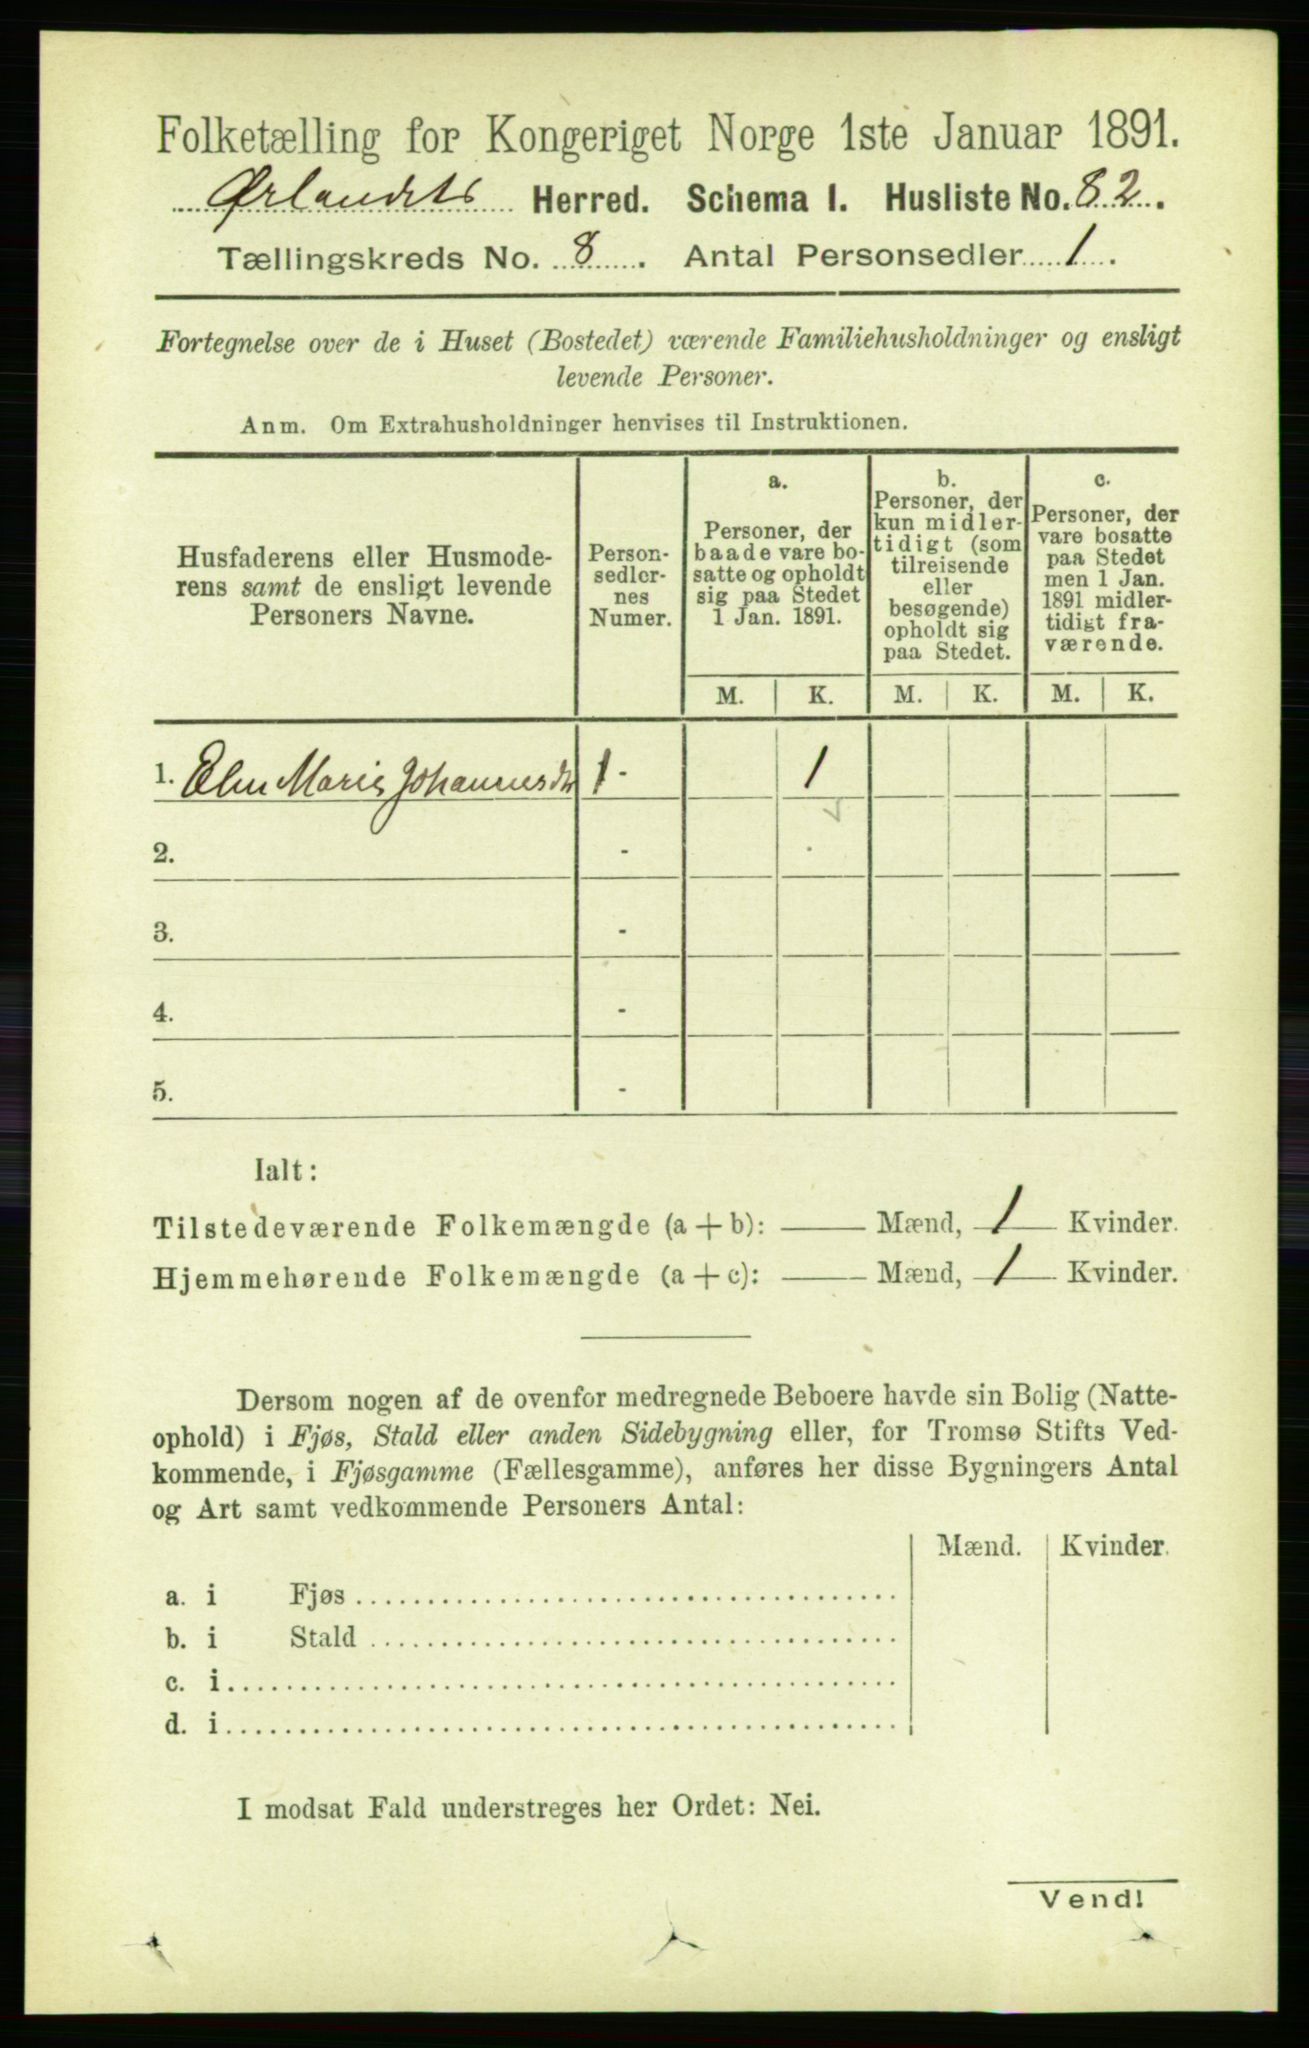 Folketælling for Kongeriget Norge 1ste Januar 1891.
Ørlandets Herred. Schema I. Husliste No. 82.
Tællingskreds No. 8. Antal Personsedler 1.
Fortegnelse over de i Huset (Bostedet) værende Familiehusholdninger og ensligt
levende Personer.
Anm. Om Extrahusholdninger henvises til Instruktionen.
Husfaderens eller Husmode-
rens samt de ensligt levende
Personers Navne.
Person-
sedler-
nes
Numer.
a.
Personer, der
baade vare bo-
satte og opholdt
sig paa Stedet
1 Jan. 1891.
b.
Personer, der
kun midler-
tidigt (som
tilreisende
eller
besøgende)
opholdt sig
paa Stedet.
c.
Personer, der
vare bosatte
paa Stedet
men 1 Jan.
1891 midler-
tidigt fra-
værende.
M. K. M. K. M. K.
1. Elen Marie Johannesdtr 1 - 1
2. -
3. -
4. -
5. -
Ialt:
Tilstedeværende Folkemængde (a + b): — Mænd, 1 Kvinder.
Hjemmehørende Folkemængde (a + c): — Mænd, 1 Kvinder.
Dersom nogen af de ovenfor medregnede Beboere havde sin Bolig (Natte-
ophold) i Fjøs, Stald eller anden Sidebygning eller, for Tromsø Stifts Ved-
kommende, i Fjøsgamme (Fællesgamme), anføres her disse Bygningers Antal
og Art samt vedkommende Personers Antal:
Mænd. Kvinder.
a. i Fjøs
b. i Stald
c. i
d. i
I modsat Fald understreges her Ordet: Nei.
Vend!